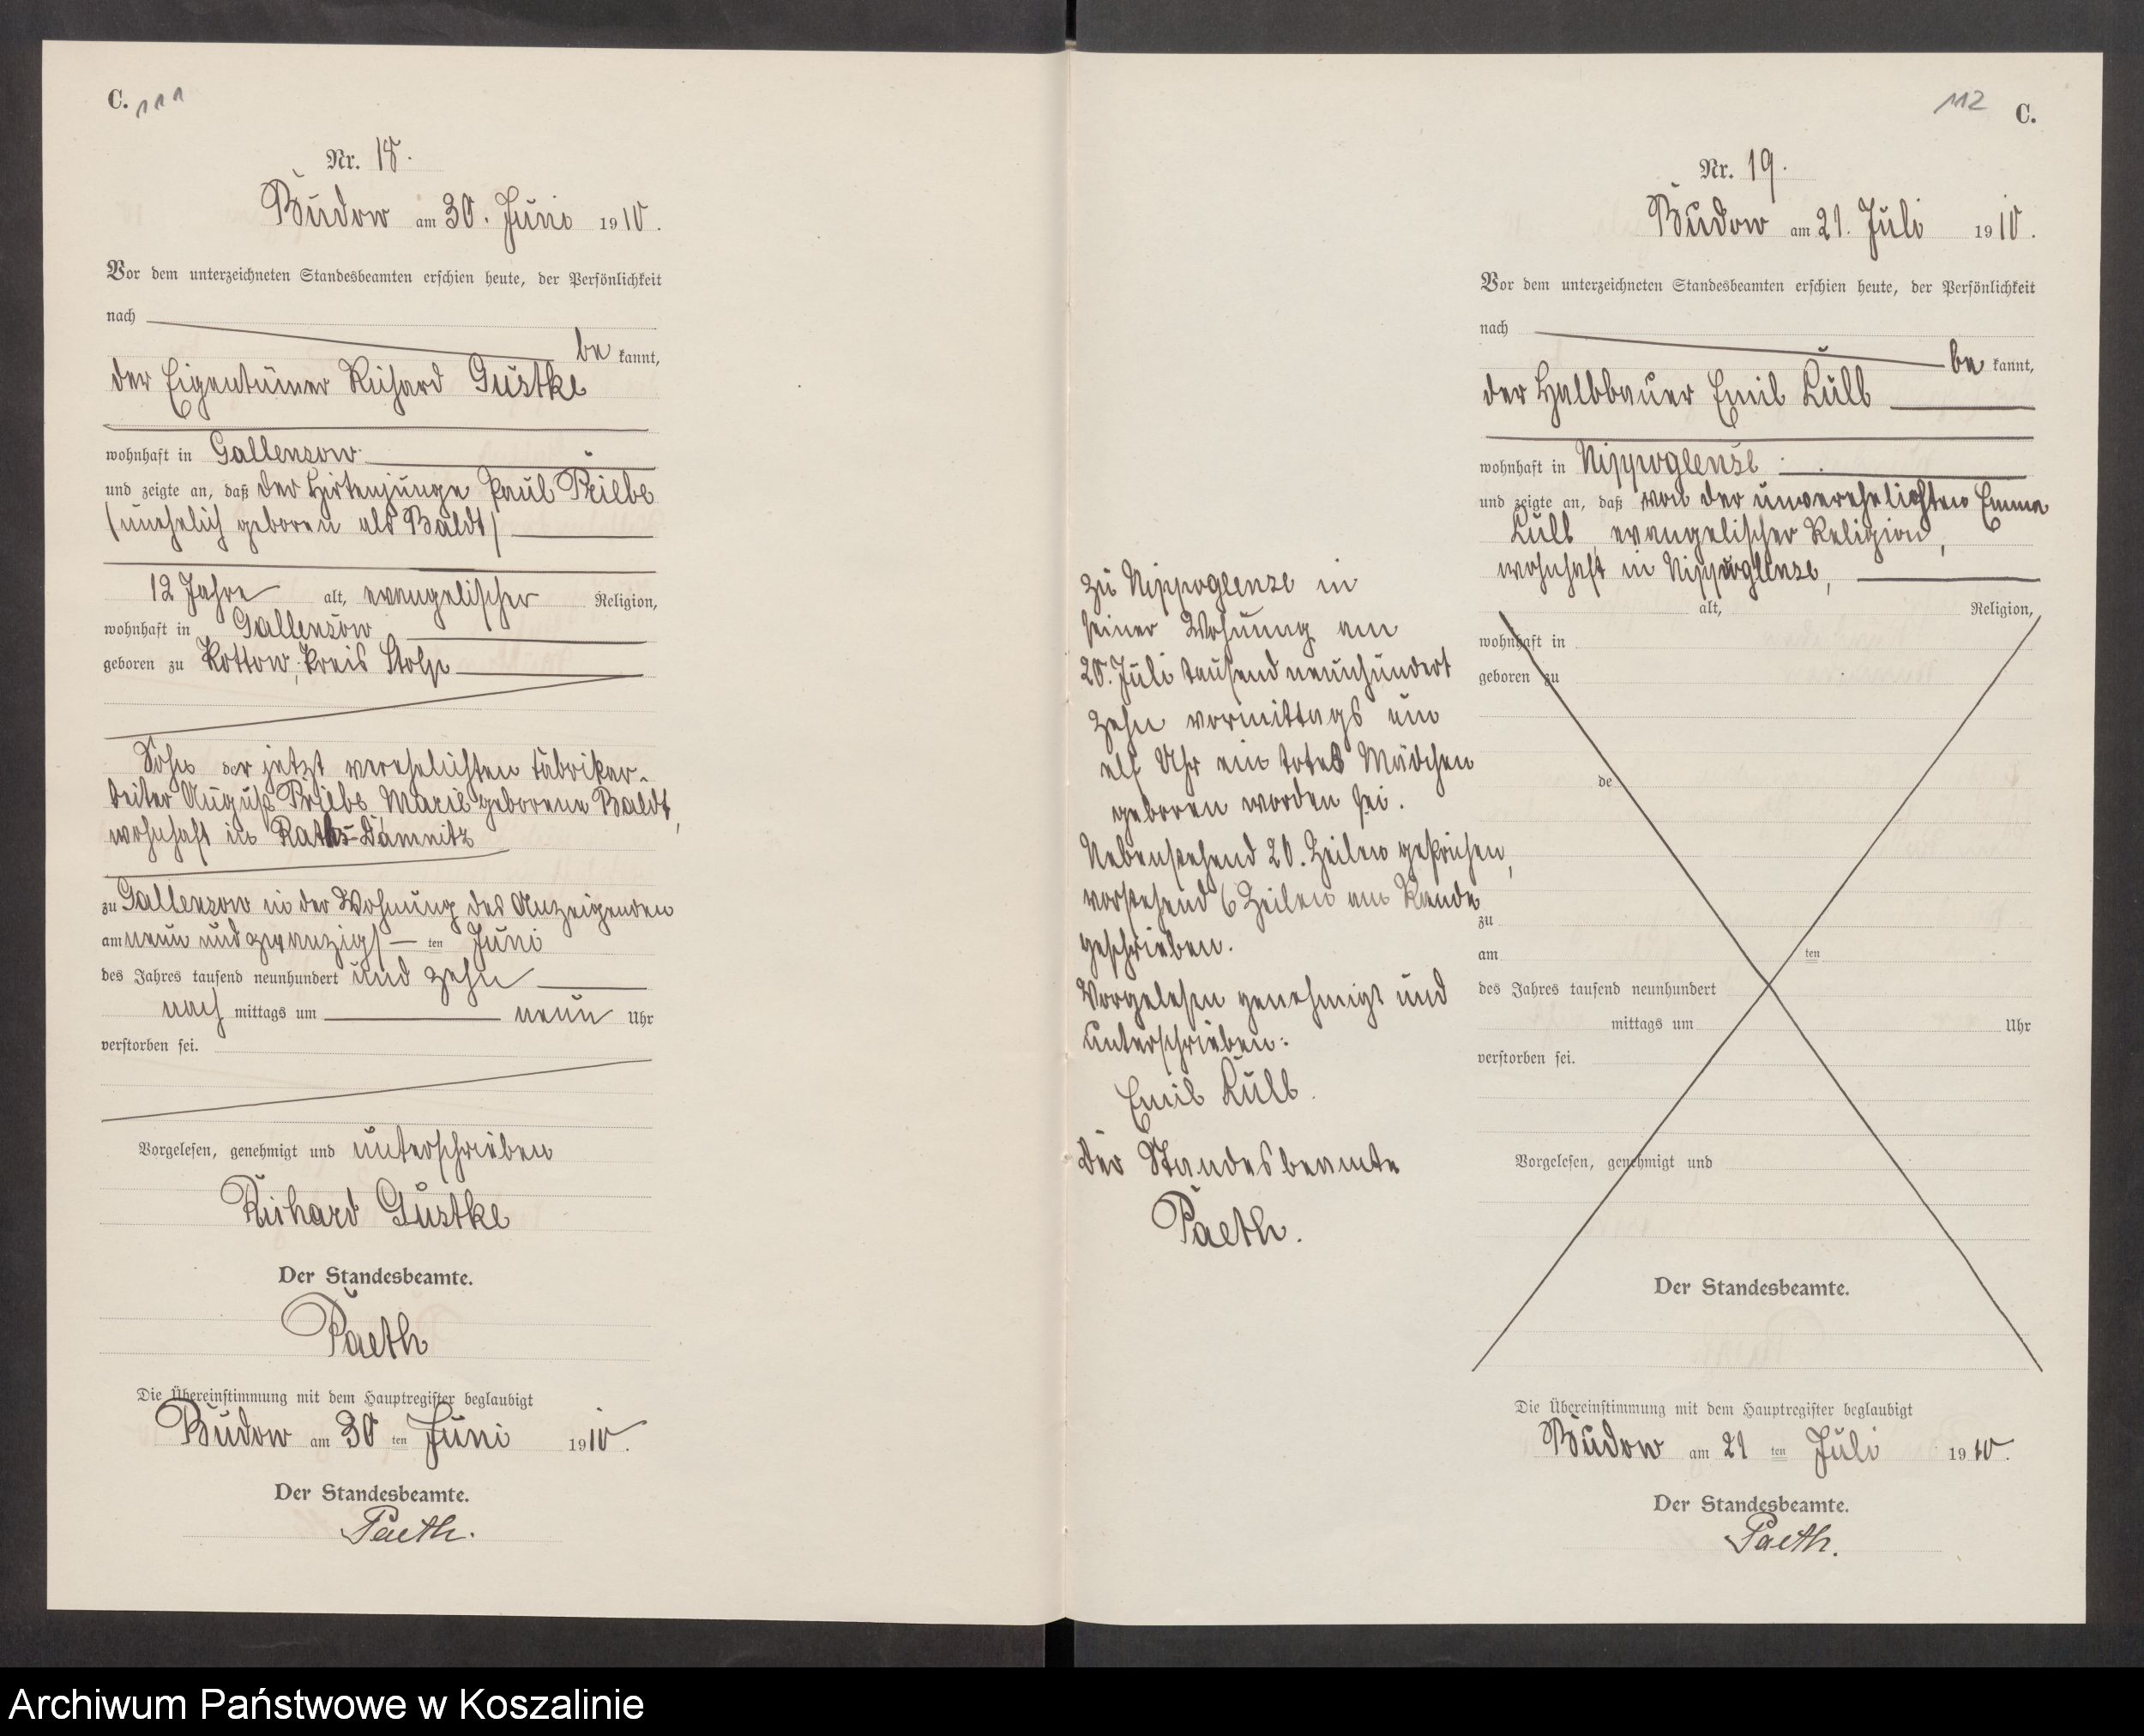 C. 111
Nr. 18.
Budow am 30. Juni 1910.
Vor dem unterzeichneten Standesbeamten erschien heute, der Persönlichkeit
nach
be kannt,
der Eigentümer Richard Gustke
wohnhaft in Gallensow
und zeigte an, daß der Hirtenjunge Paul Priebe
(unehelich geboren als Baldt)
12 Jahre alt, evangelischer Religion,
wohnhaft in Gallensow
geboren zu Kottow, Kreis Stolp
Sohn der jetzt verehelichten Fabrikar-
beiter August Priebe Marie geborene Baldt,
wohnhaft in Raths-Damnitz
zu Gallensow in der Wohnung des Anzeigenden
am neun und zwanzigs ten Juni
des Jahres tausend neunhundert und zehn
nach mittags um neun Uhr
verstorben sei.
Vorgelesen, genehmigt und unterschrieben
Richard Gustke
Der Standesbeamte.
Paeth
Die Übereinstimmung mit dem Hauptregister beglaubigt
Budow am 30 ten Juni 1910.
Der Standesbeamte.
Paeth.
112 C.
Nr. 19.
Budow am 21. Juli 1910.
Vor dem unterzeichneten Standesbeamten erschien heute, der Persönlichkeit
nach
be kannt,
der Halbbauer Emil Kulb
wohnhaft in Nippoglense
und zeigte an, daß von der unverehelichten Emma
Kulb evangelischer Religion,
wohnhaft in Nippoglense,
alt, Religion,
wohnhaft in
geboren zu
de
zu
am ten
des Jahres tausend neunhundert
mittags um Uhr
verstorben sei.
Vorgelesen, genehmigt und
Der Standesbeamte.
Die Übereinstimmung mit dem Hauptregister beglaubigt
Budow am 21 ten Juli 1910.
Der Standesbeamte.
Paeth.
zu Nippoglense in
seiner Wohnung am
20. Juli tausend neunhundert
zehn vormittags um
elf Uhr ein totes Mädchen
geboren worden sei.
Nebenstehend 20. Zeilen gestrichen,
vorstehend 6 Zeilen am Rande
geschrieben.
Vorgelesen genehmigt und
unterschrieben:
Emil Kulb.
Der Standesbeamte
Paeth.
Archiwum Państwowe w Koszalinie